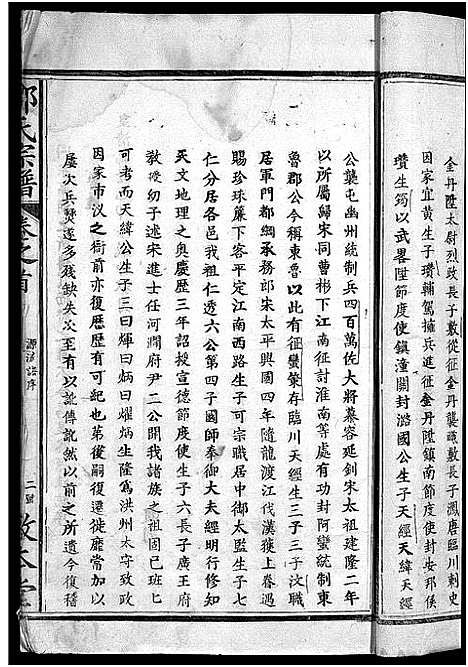 金丹陞太尉烈政長子數從征金丹襲職數長子鳳唐臨川刺史
因家宜黃生子瓚輔駕擁兵進征金丹陞鎮南節度使封安邦侯
瓚生筠以武畧陞節度使鎮潼關封潞國公生子天經天緯天經
公襲屯幽州統制兵四百萬佐大將慕容延釗宋太祖建隆二年
以所屬歸宋同曹彬下江南征討淮南等處有功封阿蠻統制東
魯郡公今稱東魯以前有征蠻籇存臨川天經生三子三子汶職
居軍門都綱承務郎宋太平興國四年隨龍渡江伐漢獲上眷遇
賜珍珠簾下客平定江南西路生子可宗職居中御太監生子七
仁分居各邑我祖仁透六公第四子國師奉御大夫經明
天文地理之奧慶歷三年詔授宣德節度使生子六長子廣王府
教授幼子述宋進士任河澗府尹二公開我諸族之祖固已班匕
可考而天緯公生子三曰煇曰炳曰燿炳生隆爲洪州太守致政
因家市汊之衙前亦復歷歷有可紀也第後嗣復遷徙靡常加以
屢次兵燹遂多殘缺失次至有以訛傳訛然以前之所遺今復稽
氏宗譜
卷之首
源流譜序
二號
敦本堂